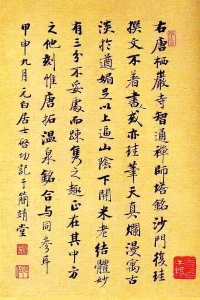 右唐栖巖寺智通禪師塔銘沙門復珪
撰文不著書或亦珪筆天真爛漫寓古
淡於遒媚足以上逼山陰下開米老結體妙
有三分不妥處而踈雋之趣正在其中方
之他刻惟唐拓溫泉銘合與同參耳
甲申九月元白居士啓功記于簡靖堂